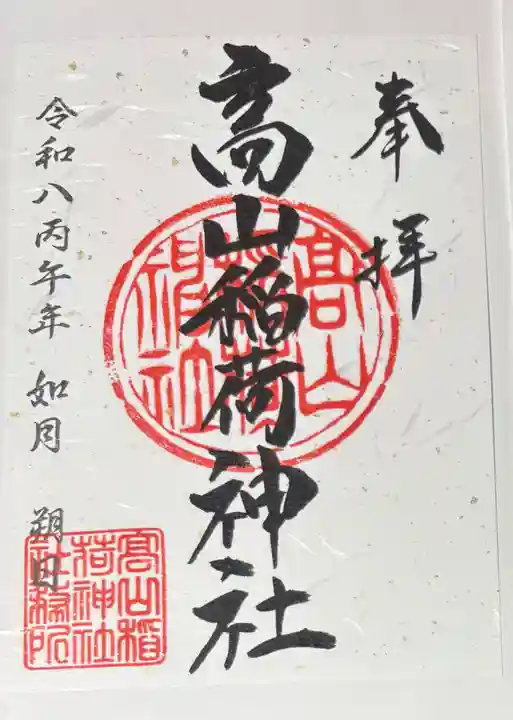 奉拝
高山稲荷神社
髙山稲荷神社
令和八丙午年 如月 朔日
髙山稲荷神社社務所